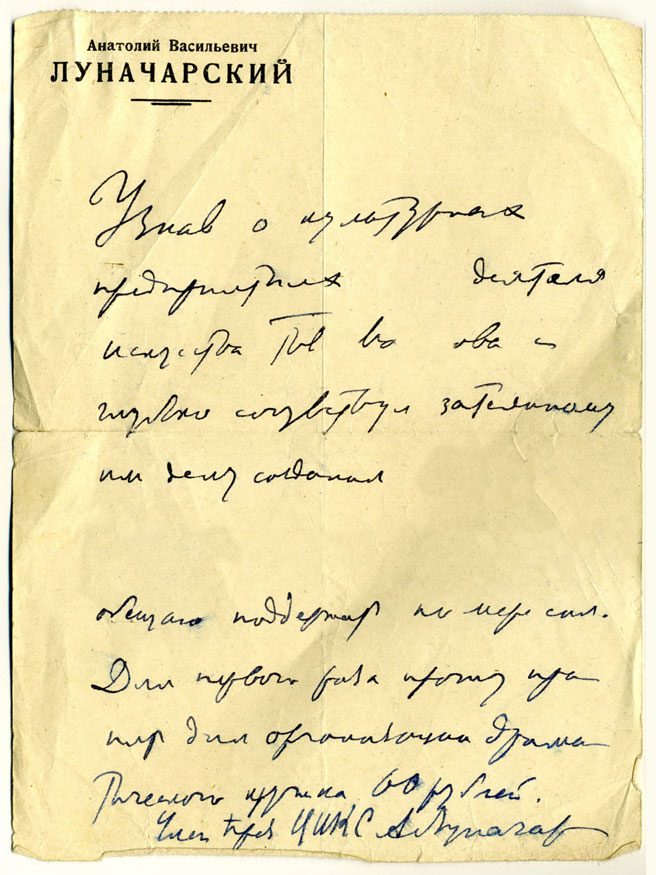 Анатолий Васильевич
ЛУНАЧАРСКИЙ
Узнав о культурных
предприятиях деятеля
искусства Тов Во ова и
глубоко сочувствуя затеянному
им делу создания
обещаю поддержать по мере сил.
Для первого раза прошу при-
нять для организации драма-
тического кружка 60 рублей.
Член През ЦИКС АЛуначар